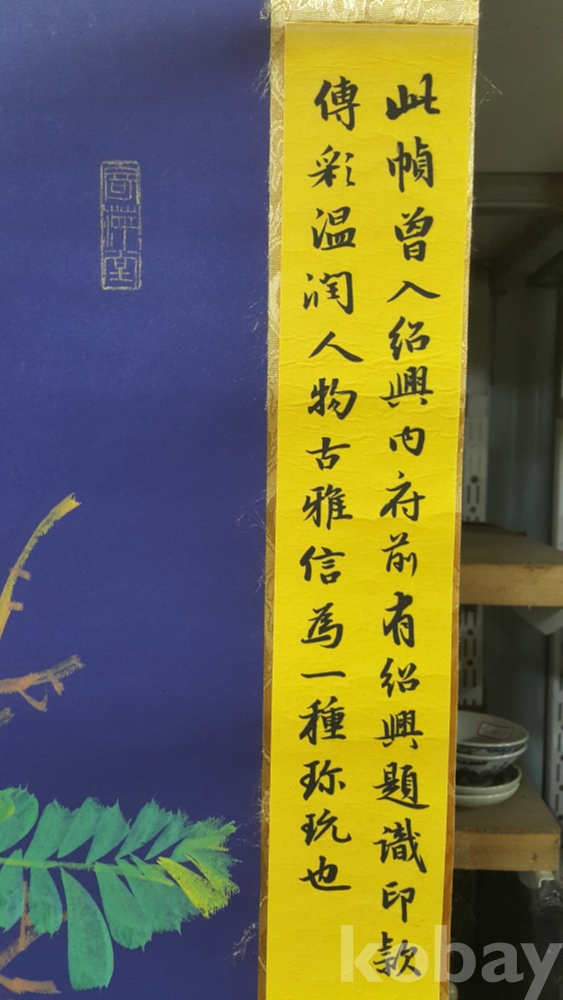 此幀曾入紹興内府前有紹興題識印款
傅彩温润人物古雅信為一種珎玩也
kobay